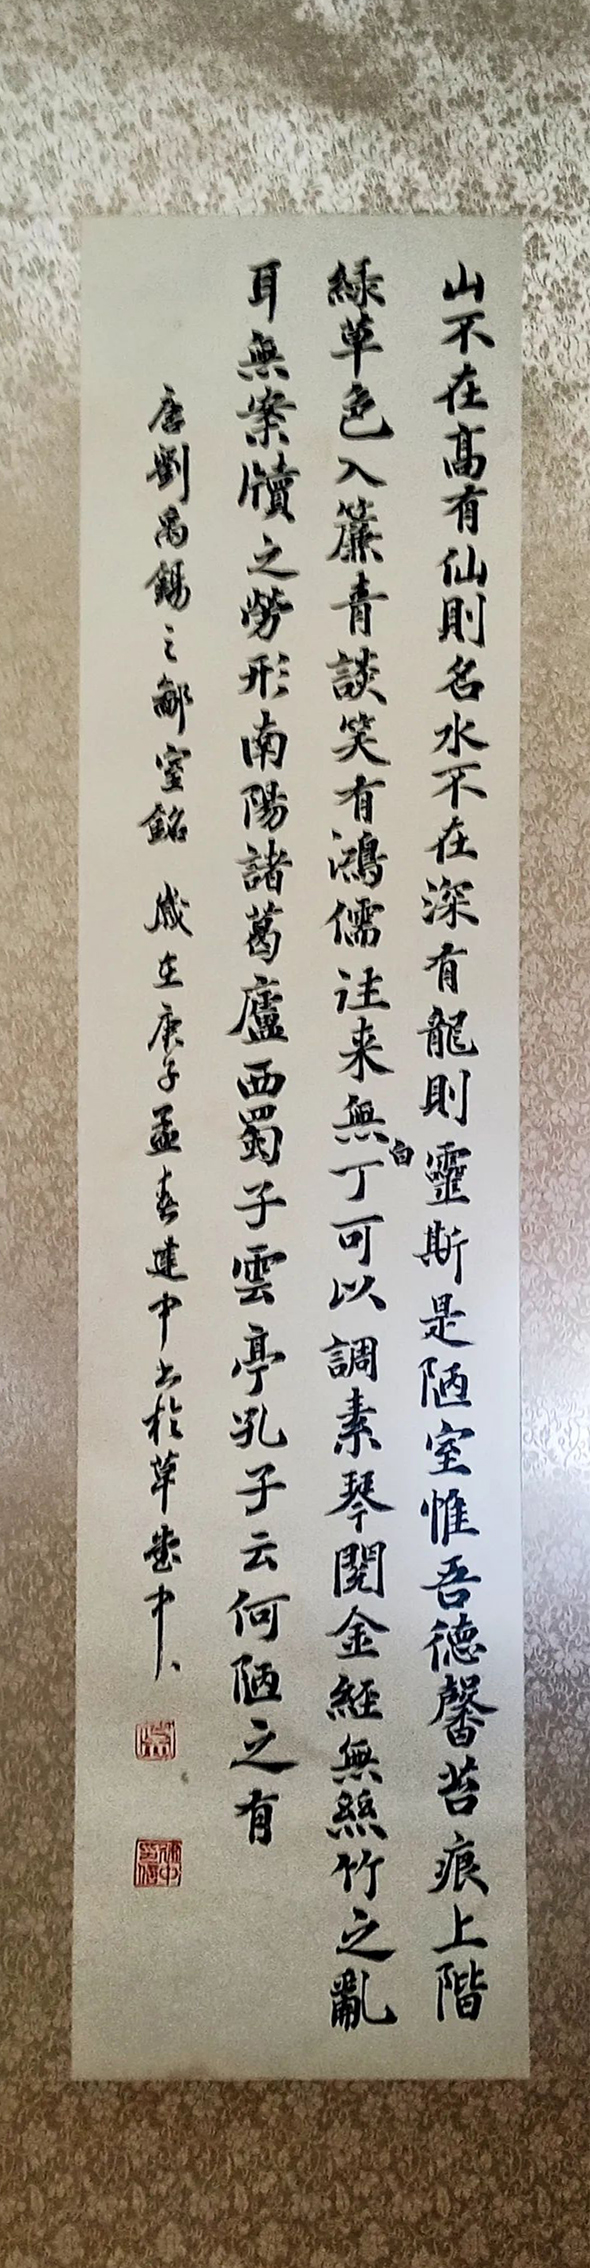 山不在高有仙則名水不在深有龍則靈斯是陋室惟吾德馨苔痕上階
綠草色入簾青談笑有鴻儒往来無白丁可以調素琴閱金經無絲竹之亂
耳無案牘之勞形南陽諸葛廬西蜀子雲亭孔子云何陋之有
唐劉禹錫之陋室銘 歲在庚子孟春建中书於草堂中